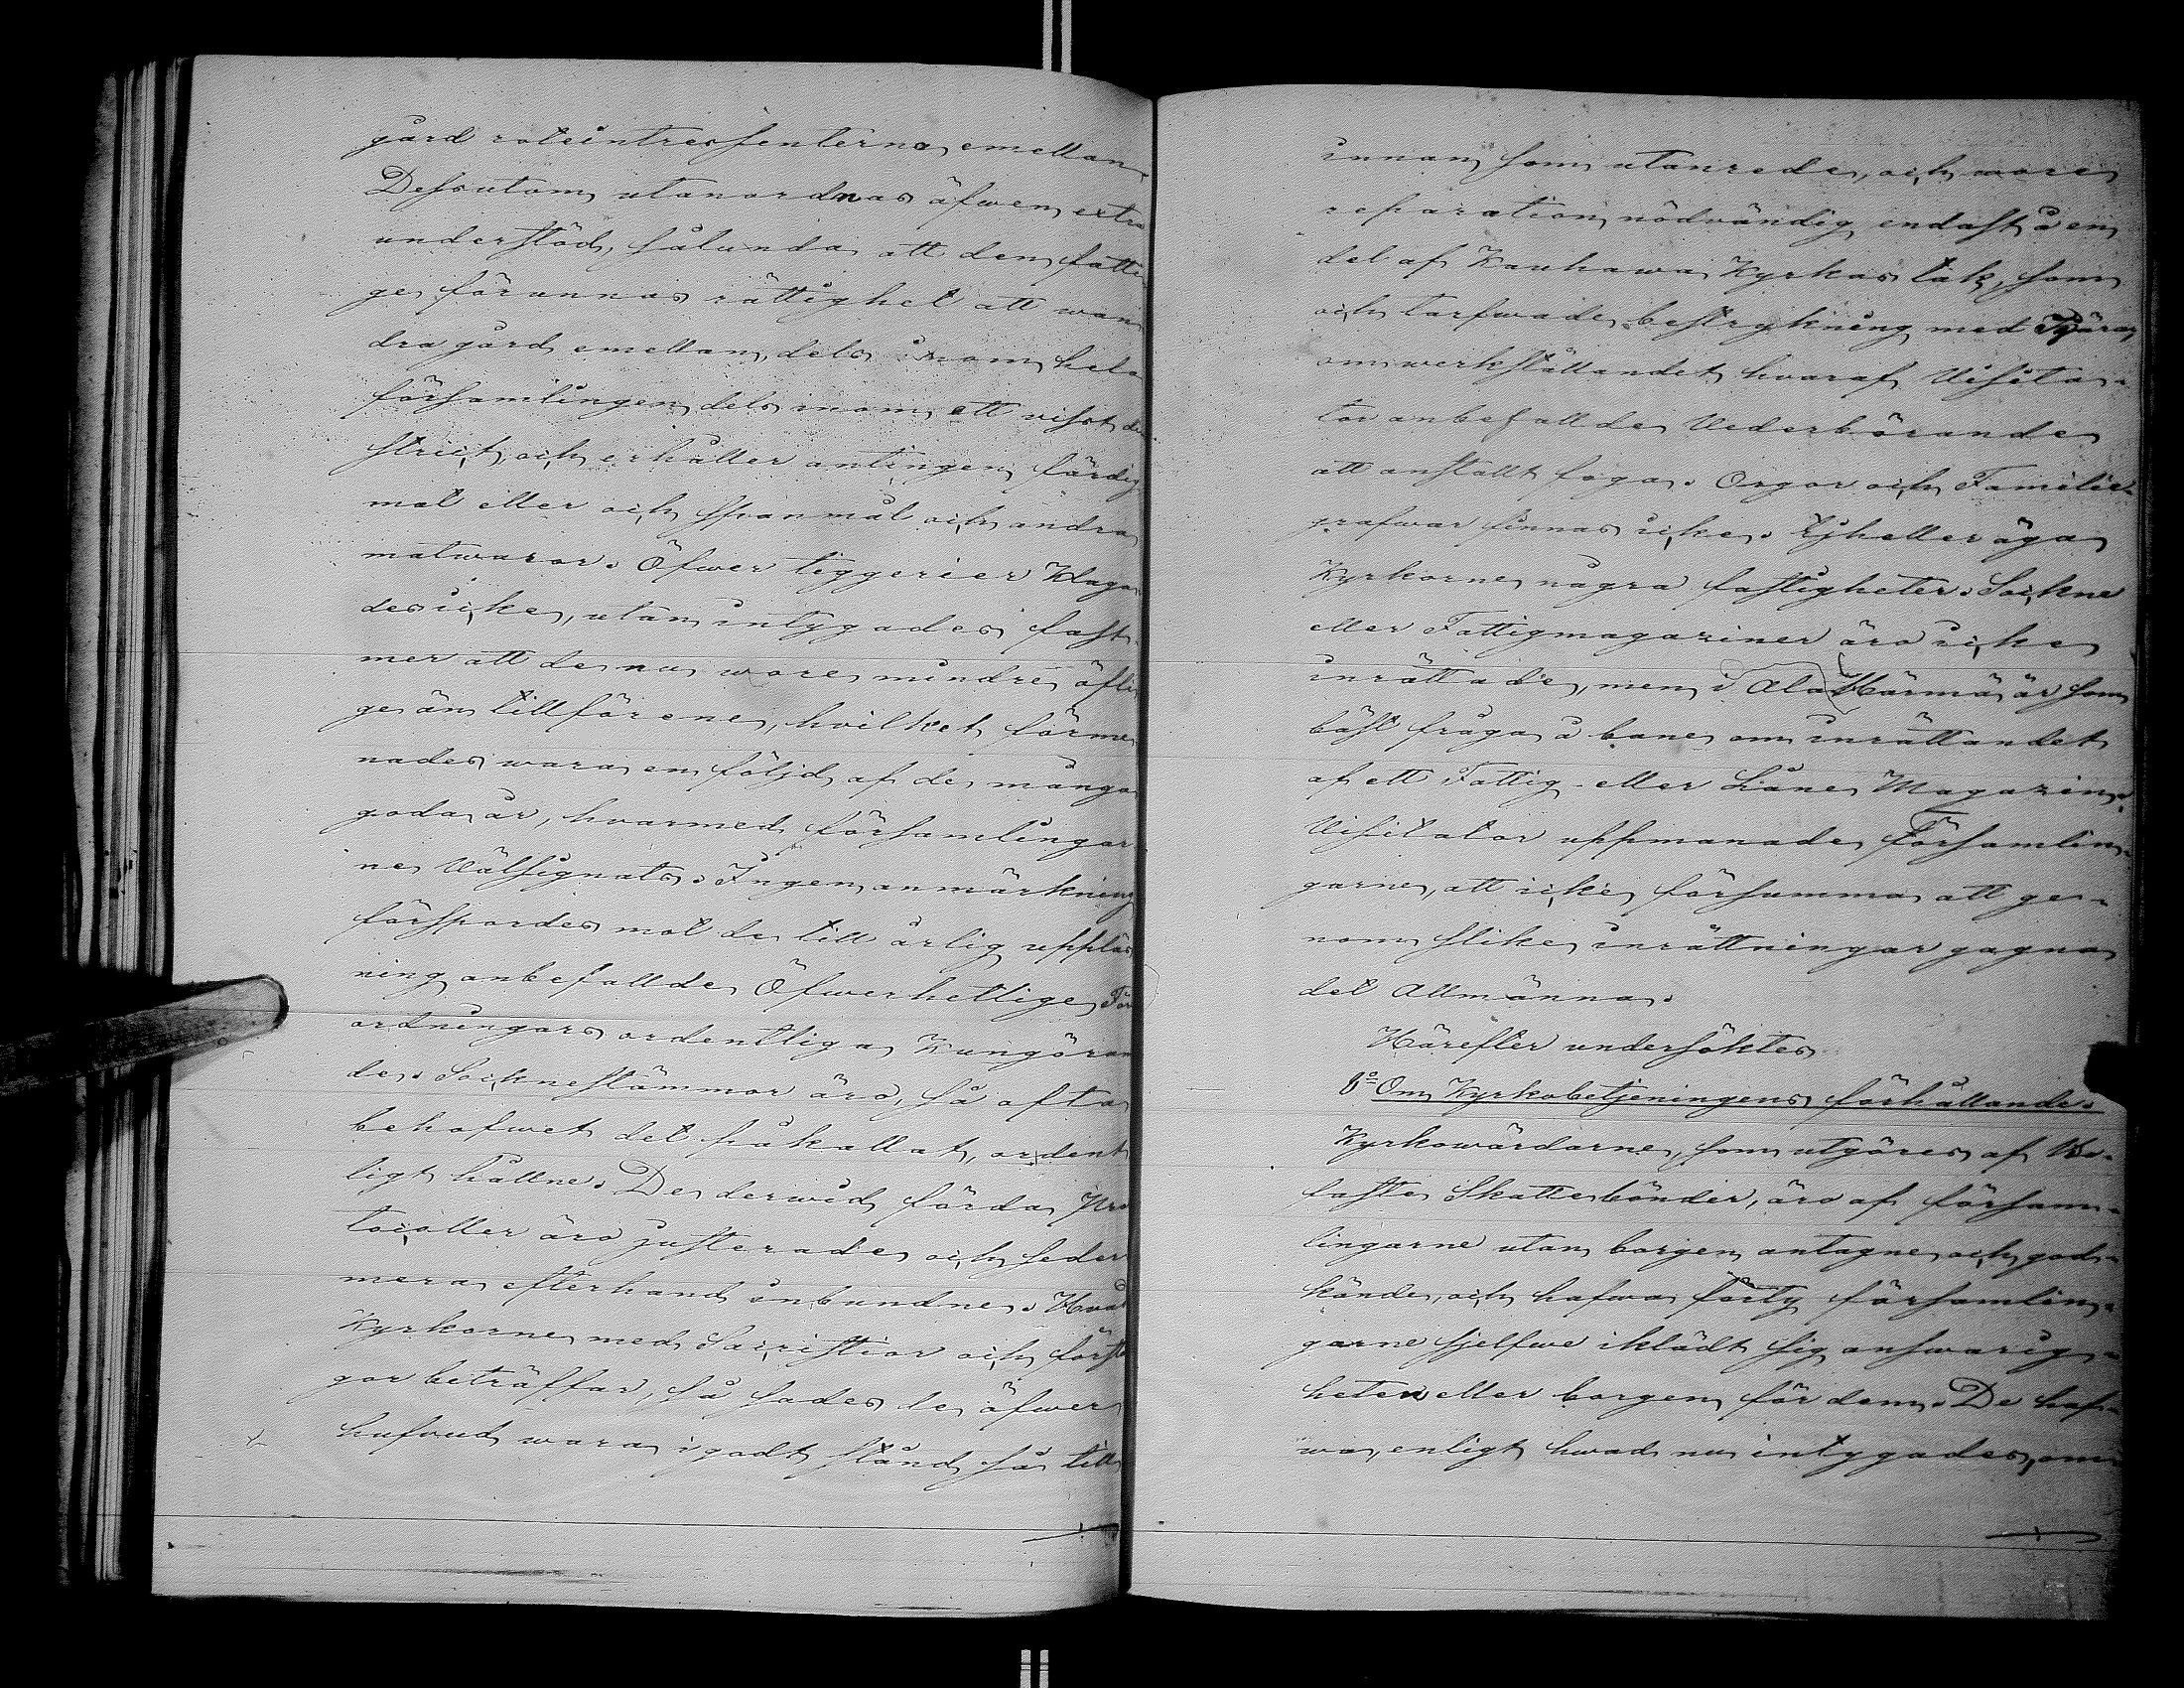 gård roteintressenterna emellan.
Dessutom utanordnas äfwen extra
understöd, sålunda att den fatti
ge förunnas rättighet att wan
dra gård emellan, dels inom hela
församlingen dels inom ett visst di
strict, och erhåller antingen färdig
mat eller och spanmål och andra
matwaror. Öfwer tiggerier klaga
des icke, utan intygades fast-
mer att de nu wore mindre öfli
ge än tillförene, hvilket förme
nades wara en följd af de många
goda år, hvarmed församlingar
ne Välsignats. Ingen anmärkning
förspordes mot de till årlig uppläs
ning anbefallde Öfwerhetlige För
ordningars ordentliga Kungöran
de. Socknestämmor äro, så ofta
behofwet det påkallat, ordent
ligt hållne. De derwid förda Pro
tocoller äro justerade och seder
mera efterhand inbundne. Hvad
Kyrkorne med Sacristior och
gor beträffar, så sades de öfwer
hufvud wara i godt stånd så till
innan som utanrede, och wore
reparation nödvändig endast å en
del af Kauhawa Kyrkas tak, som
och tarfwade bestrykning med Tjära,
om werkställandet hvaraf Visita-
tor anbefallde Vederbörande
att anstallt foga. Orgor och Familie-
grafwar finnas icke. Ejheller äga
Kyrkorne några fastigheter. Sockne
eller Fattigmagaziner äro icke
inrättade, men i Ala Härmä är som
bäst fråga å bane om inrättandet
af ett Fattig- eller Låne Magazin.
Visitator uppmanade Församlin-
garne, att icke försumma att ge-
nom slike inrättningar gagna
det Allmänna.
Härefter undersöktes
6:o Om Kyrkobetjeningens förhållande.
Kyrkowärdarne, som utgöres af Bo-
faste Skattebönder, äro af församm-
lingarne utan borgen antagne och god-
kände, och hafwa förty församlin-
garne sjelfwe iklädt sig answarig-
heten eller borgen för dem. De haf-
wa, enligt hwad nu intygades, om